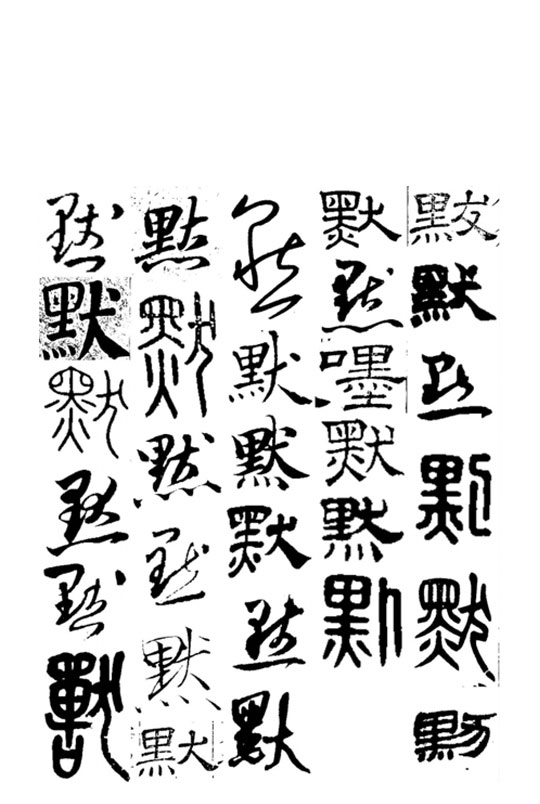 默默默默默默
默默嚜默默默
默默默默默默
默默默默默默
默默默默默默